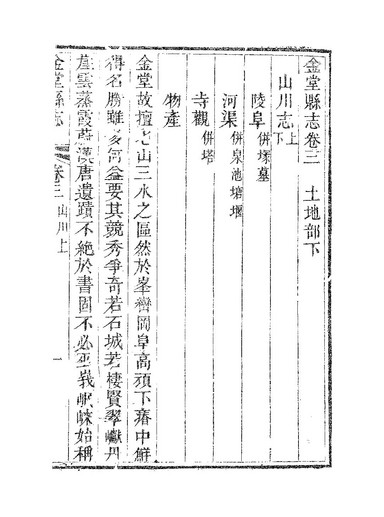 金堂縣志卷三　土地部下
山川志上下
陵阜併塚墓
河渠併泉池塘堰
寺觀併塔
物產
金堂故擅七山三水之區然於峯巒岡阜高頑下春中鮮
得名勝雖多何益要其競秀爭奇若石城若棲賢翠巘丹
崖雲蒸霞蔚漢唐遺蹟不絶於書固不必巫峩岷崍始稱
金堂縣志　卷三　山川上　一